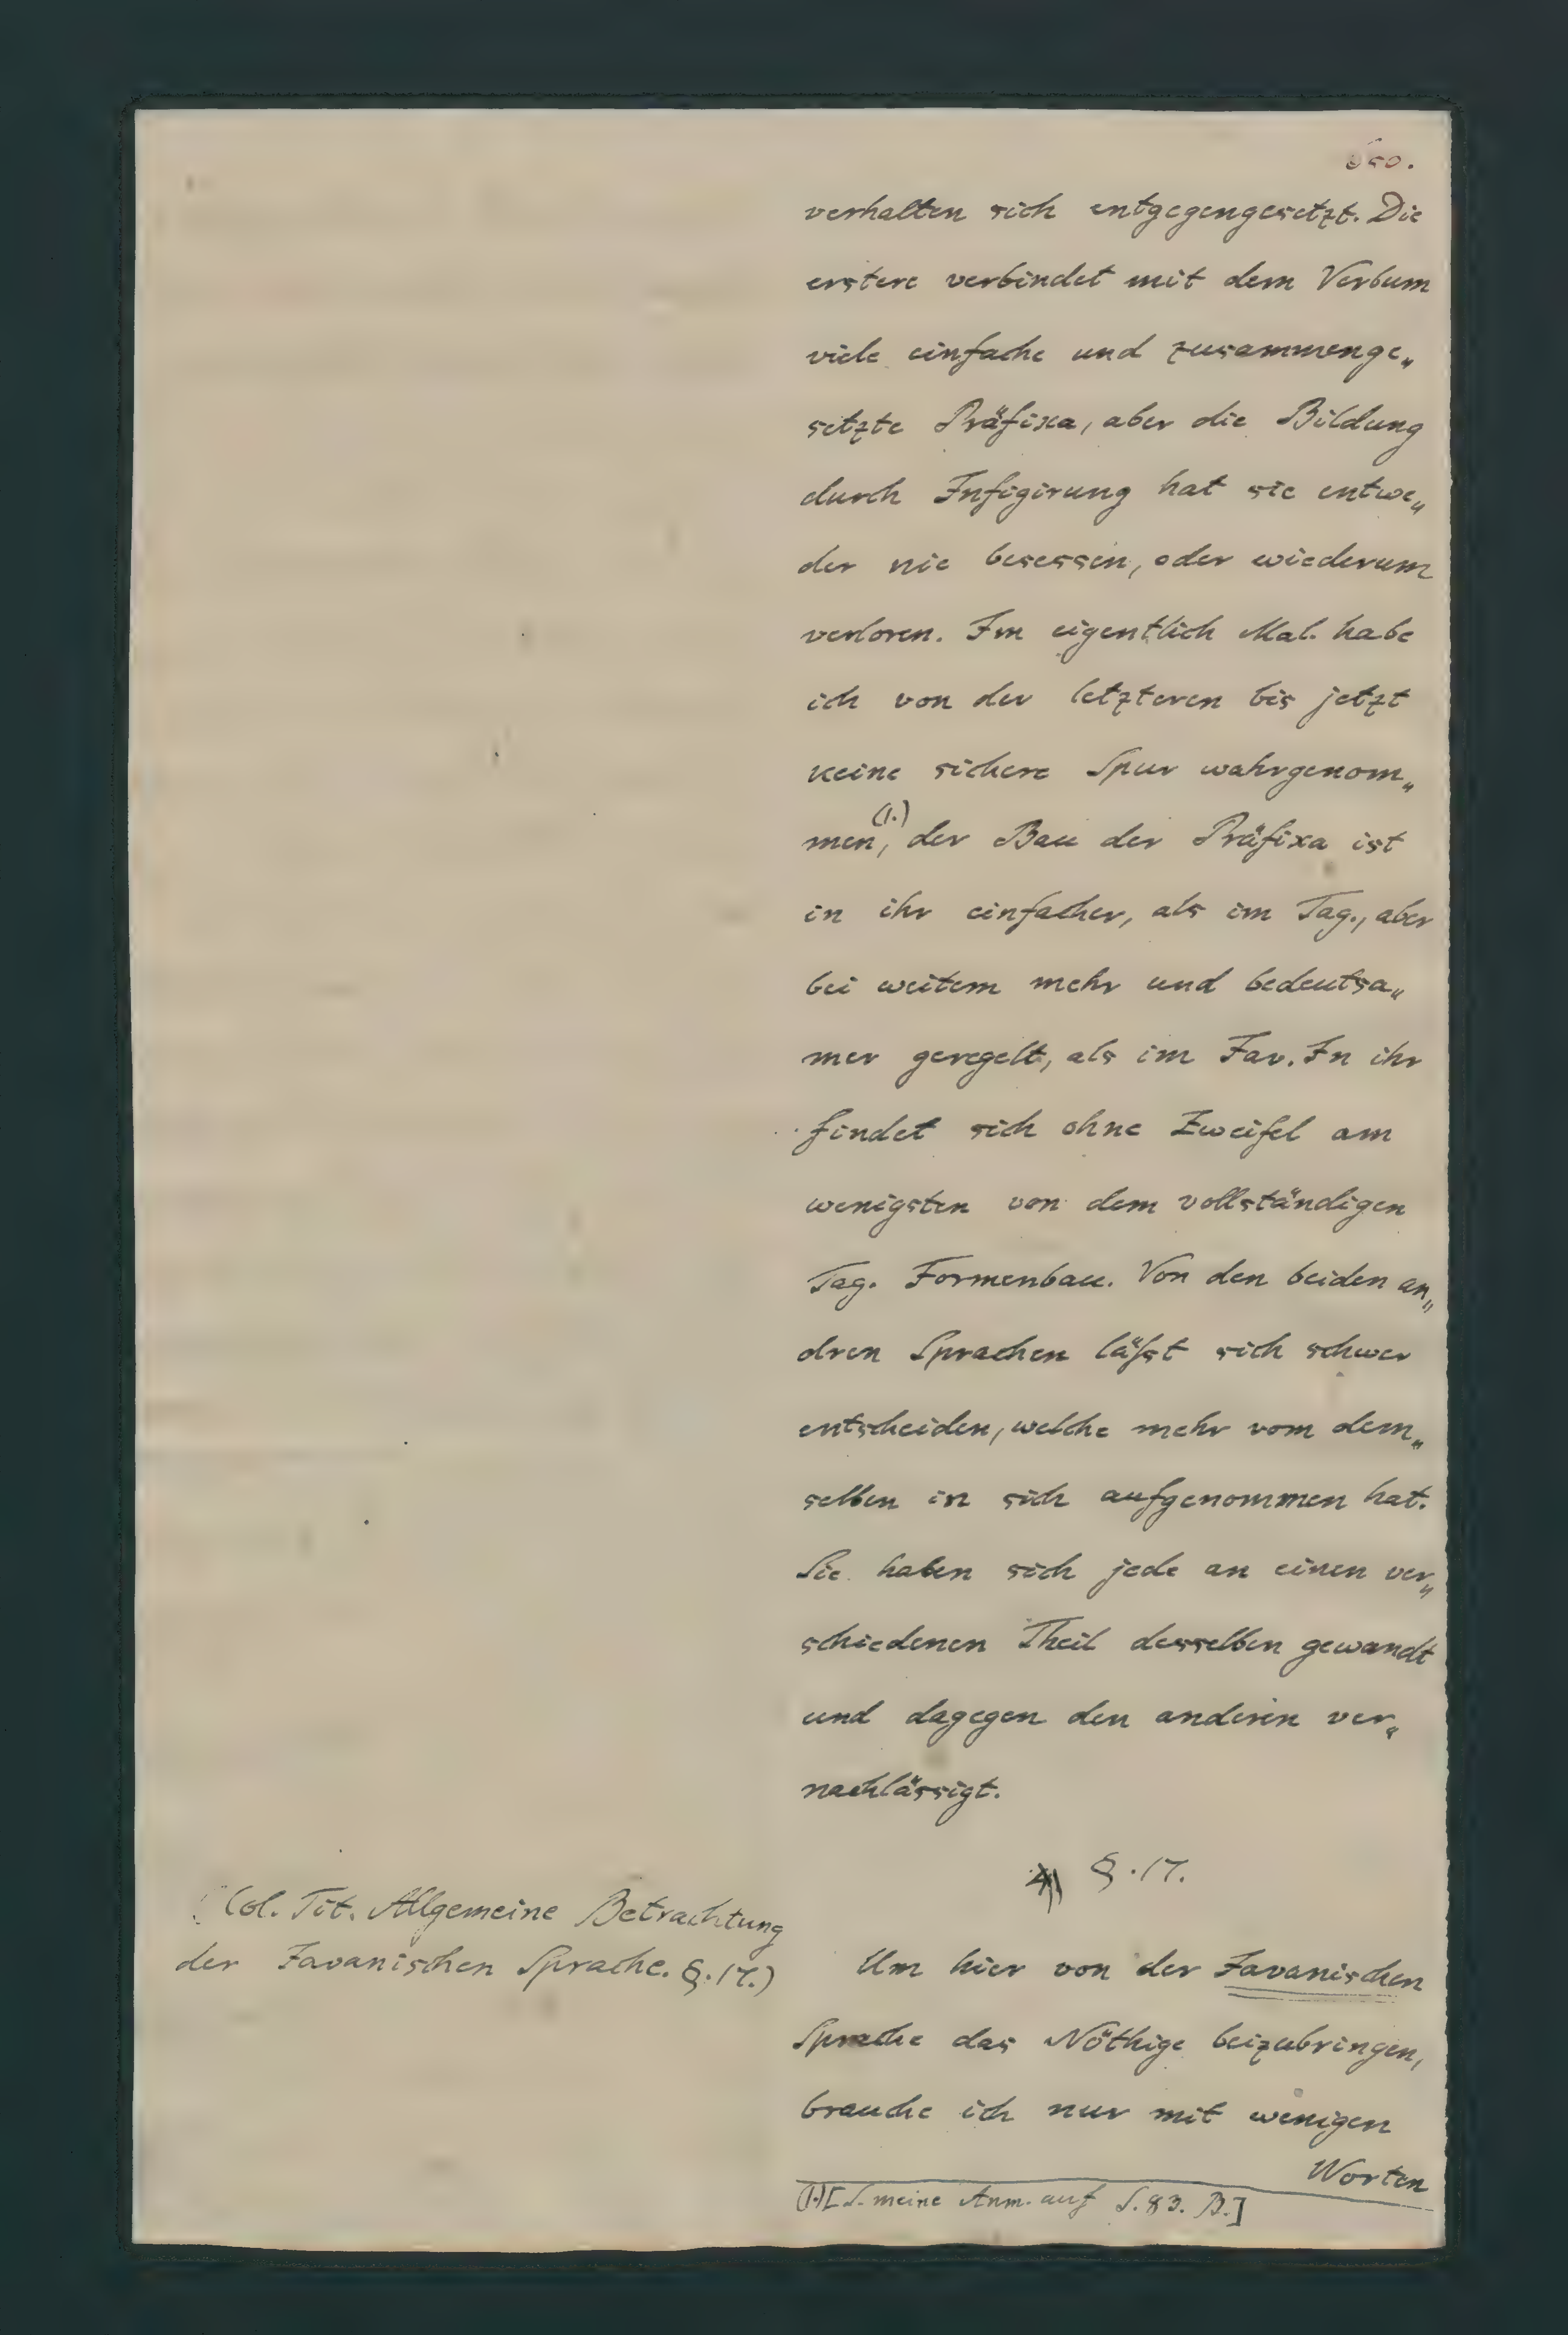 verhalten sich entgegengesetzt. Die
erstere verbindet mit dem Verbum
viele einfache und zusammenge„
setzte Präfixa, aber die Bildung
durch Infigirung hat sie entwe„
der nie besessen, oder wiederum
verloren. Im eigentlich Mal. habe
ich von der letzteren bis jetzt
keine sichere Spur wahrgenom„
men,(1.) der Bau der Präfixa ist
in ihr einfacher, als im Tag., aber
bei weitem mehr und bedeutsa„
mer geregelt, als im Jav. In ihr
findet sich ohne Zweifel am
wenigsten von dem vollständigen
Tag. Formenbau. Von den beiden an„
dren Sprachen läßt sich schwer
entscheiden, welche mehr vom dem„
selben in sich aufgenommen hat.
Sie haben sich jede an einen ver„
schiedenen Theil desselben gewandt
und dagegen den anderen ver„
nachlässigt.
§. 17.
(Col. Tit. Allgemeine Betrachtung
der Javanischen Sprache. §. 17.)
Um hier von der Javanischen
Sprache das Nöthige beizubringen,
brauche ich nur mit wenigen
Worten
(1.) [S. meine Anm. auf S. 83. B.]